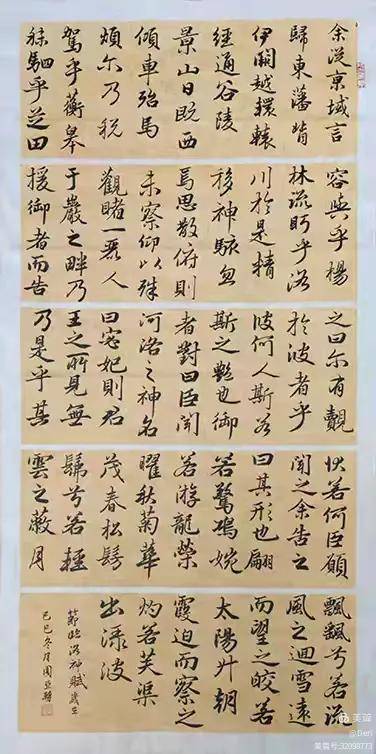 余從京域言
歸東藩背
伊闕越轘轅
經通谷陵
景山日既西
傾車殆馬
煩尔乃税
駕乎蘅皋
秣駟乎芝田
容與乎楊
林流眄乎洛
川於是精
移神駭忽
焉思散俯則
未察仰以殊
觀睹一麗人
于巖之畔乃
援御者而告
之曰尔有覿
於彼者乎
彼何人斯若
斯之艷也御
者對曰臣聞
河洛之神名
曰宓妃則君
王之所見無
乃是乎其
狀若何臣願
聞之余告之
曰其形也翩
若驚鴻婉
若游龍榮
曜秋菊華
茂春松髣
髴兮若輕
雲之蔽月
飄飖兮若流
風之迴雪遠
而望之皎若
太陽升朝
霞迫而察之
灼若芙蕖
出渌波
節臨洛神賦歲在
己巳冬月周亞
美篇
@Deri
美篇号:32098773